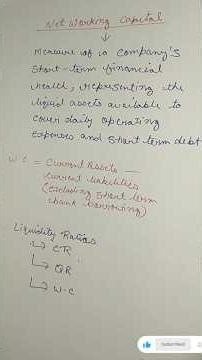 Net Working Capital
Measure of a Company's
Short-term financial
health, representing the
liquid assets available to
cover daily operating
Expenses and short term debt
W C = Current Assets —
Current liabilities
(excluding short term
bank borrowing)
Liquidity Ratios
CR
QR
W-C
Subscribed